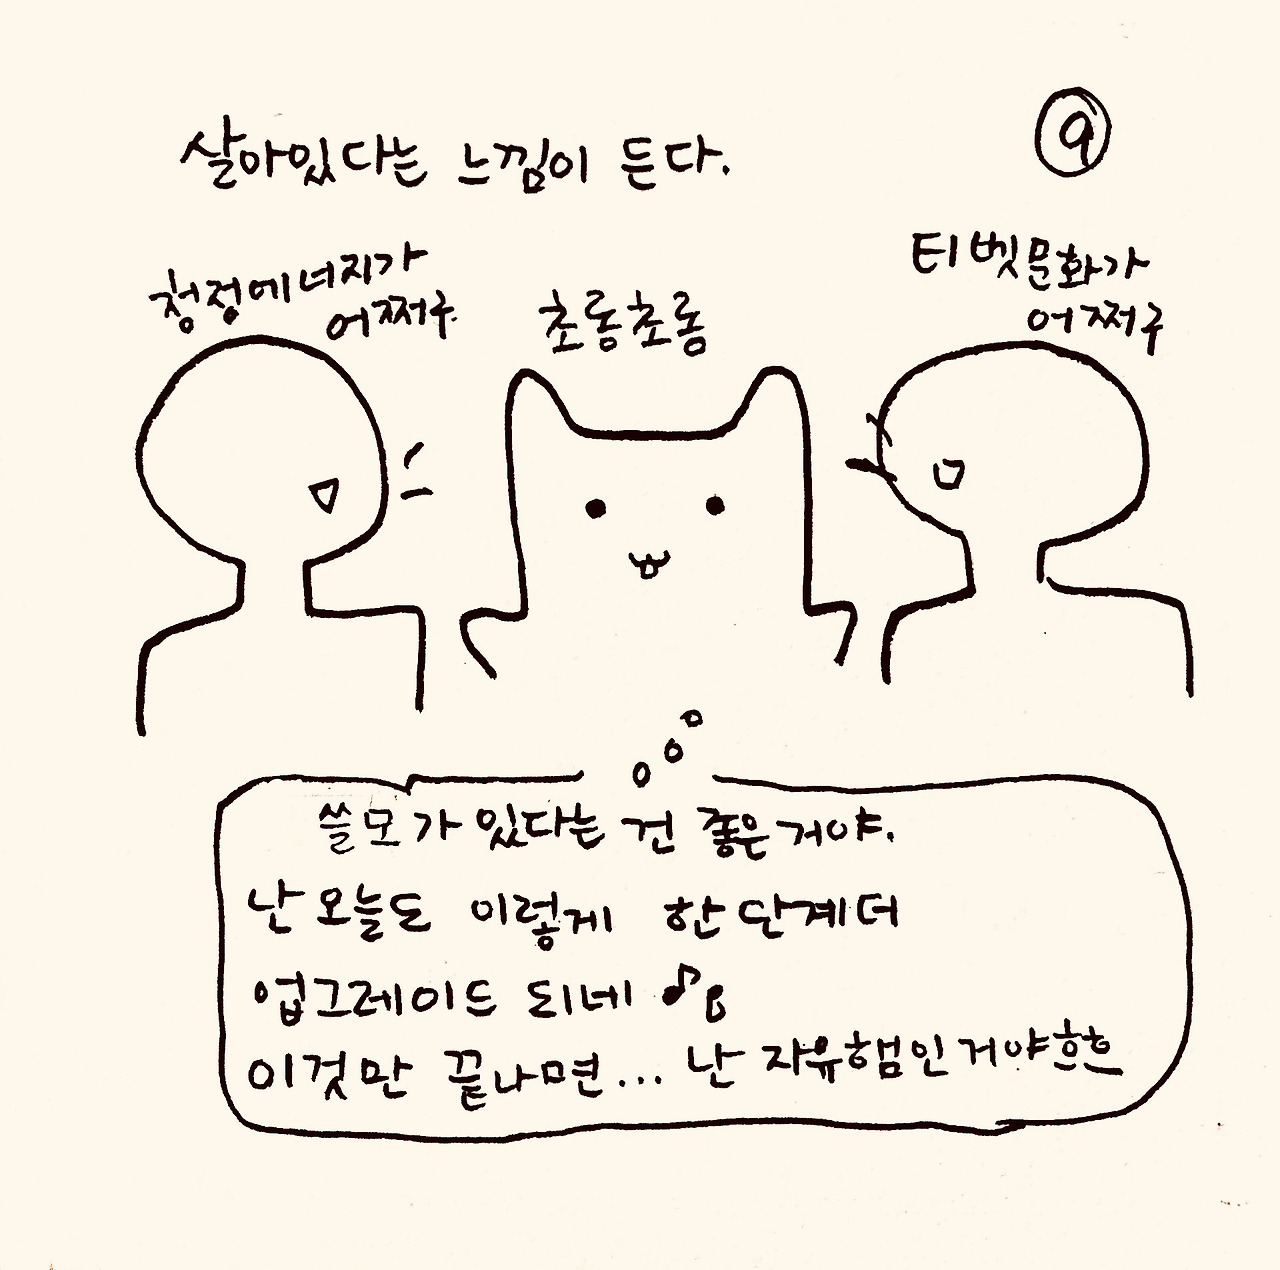 살아있다는 느낌이 든다.
9
청정에너지가
어쩌구.
초롱초롱
티벳문화가
어쩌구
쓸모가 있다는 건 좋은거야.
난 오늘도 이렇게 한단계더
업그레이드 되네 ♪
이것만 끝나면... 난 자유햄인거야흐흐